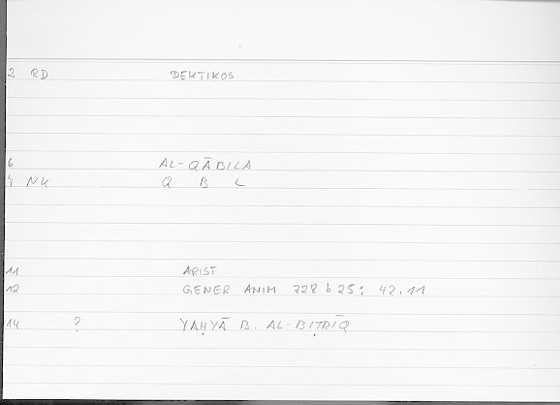 2 RD DEKTIKOS
6 AL-QĀBILA
NK Q B L
11 ARIST
12 GENER ANIM 728 b 25; 42.11
14 ? YAḤYĀ B. AL-BIṬRĪQ